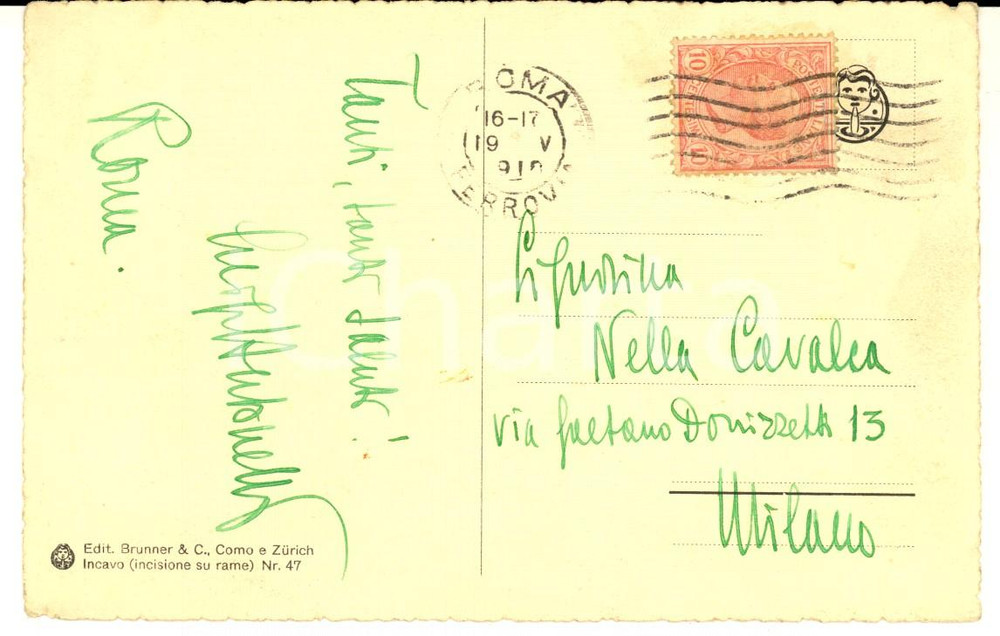 Tanti, tanti saluti!
Roma.
ROMA
16-17
19 V
FERROVIA
10
10
Signorina
Nella Cavalca
via Gaetano Donizzetti 13
Milano
Edit. Brunner & C., Como e Zürich
Incavo (incisione su rame) Nr. 47